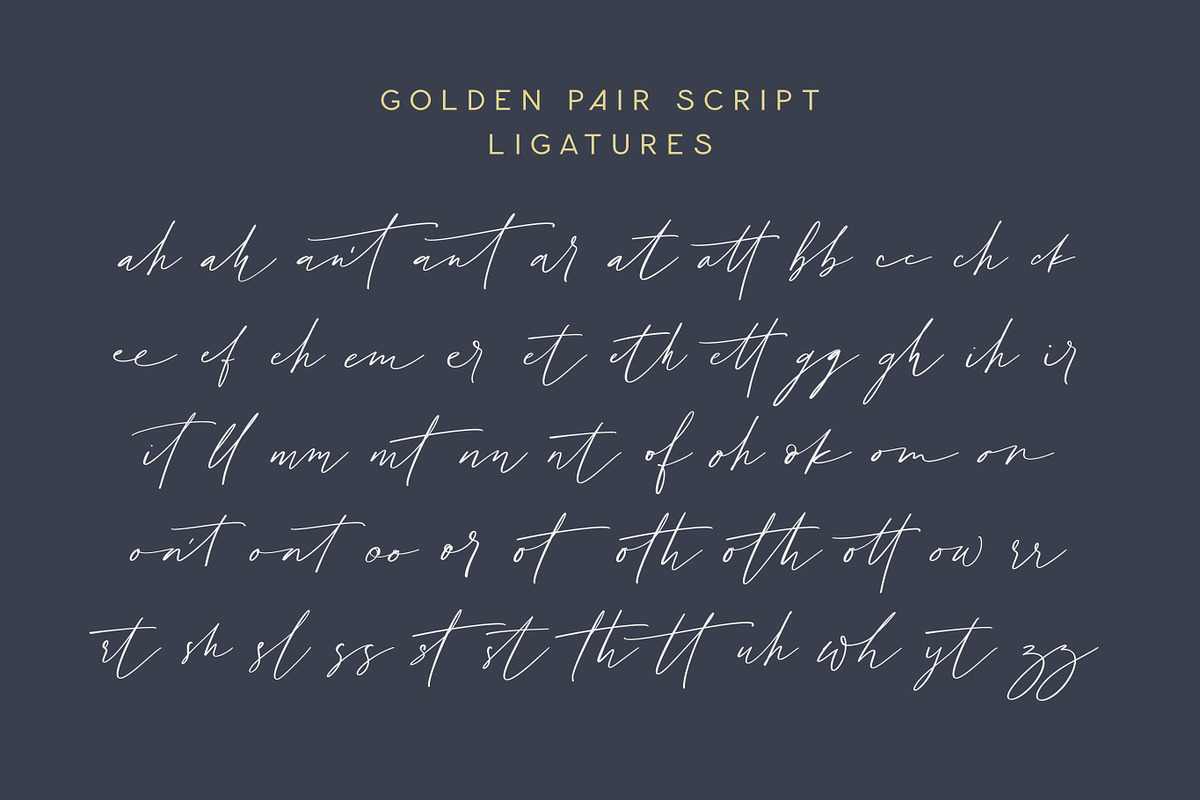 GOLDEN PAIR SCRIPT
LIGATURES
ah ah an't ant ar at att bb cc ch ck
ee ef eh em er et eth ett gg gh ih ir
it ll mm mt nn nt of oh ok om on
on't ont oo or ot oth oth ott ow rr
rt sh sl ss st st th tt uh wh yt zz